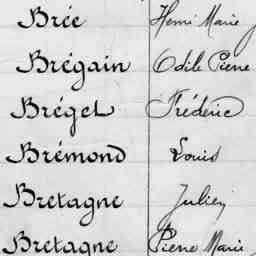 Brée Henri Marie
Brégain Odile Pierre
Bréget Frédéric
Brémond Louis
Bretagne Julien
Bretagne Pierre Marie